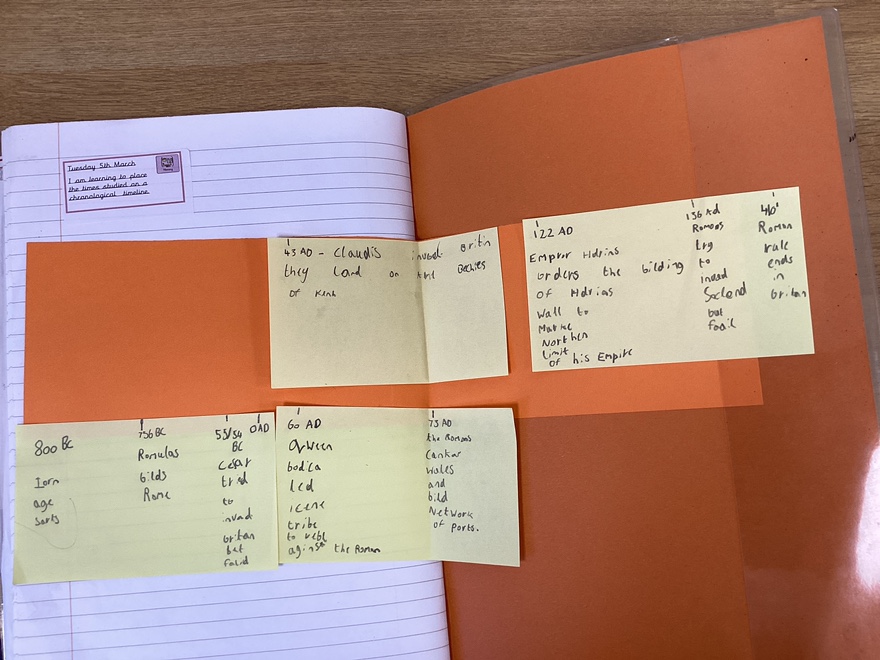 Tuesday 5th March
I am learning to place
the times studied on a
chronological timeline.
43 AD - Claudis invaed Britin
they land on the Bechies
of Kent
122 AD
Empror Hdrins
orders the bilding
of Hdrias
Wall to
Marke
Northen
Limit
of his Empire
136 Ad
Romans
try
to
invad
Scoland
but
fail
410
Roman
rule
ends
in
Britan
800 BC
Iorn
age
sarts
756 BC
Romulas
bilds
Rome
55/54
BC
Cesar
tried
to
invad
britan
but
faild
0 AD
60 AD
Qween
bodica
led
icene
tribe
to rebl
aginst the Roman
73 AD
the Romans
Cankar
Wales
and
bild
Network
of Forts.